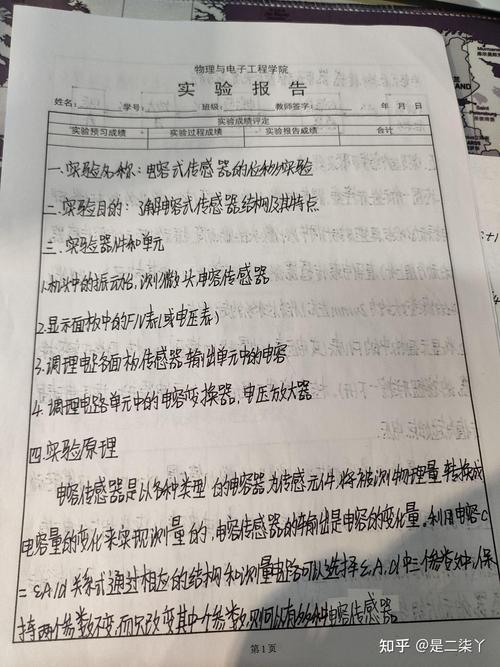 物理与电子工程学院
实 验 报 告
姓名: 学号: 班级: 教师签字: 年 月 日
实验成绩评定
实验预习成绩 实验过程成绩 实验报告成绩 合计
一.实验名称:电容式传感器的位移实验
二.实验目的:了解电容式传感器结构及其特点
三.实验器件和单元
1.机头中的振元台,测微头,电容传感器
2.显示面板中的F/V表(或电压表)
3.调理电路面板传感器输出单元中的电容
4.调理电路单元中的电容变换器,电压放大器
四.实验原理
电容传感器是以各种类型的电容器为传感元件,将被测物理量转换成
电容量的变化来实现测量的,电容传感器的输出是电容的变化量。利用电容C
=εA/d关系式通过相应的结构和测量电路可以选择ε.A.d中三个参数中,保
持两个参数不变,而只改变其中一个参数,则可以有多种电容传感器
第1页
知乎 @是二柒丫